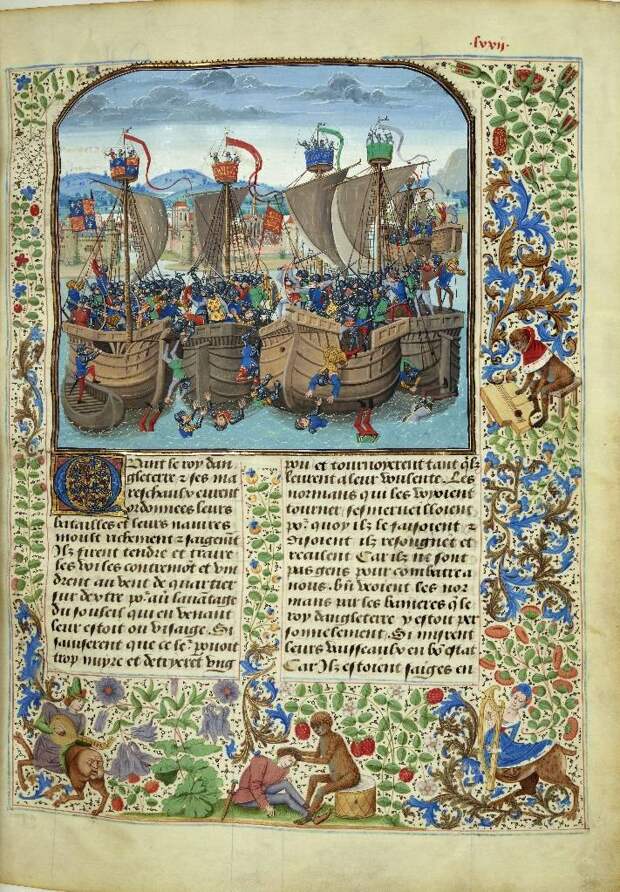 lxxii
Quant le roy dan
gleterre & ses ma
reschaulx eurent
ordonnees leurs
batailles et leurs navires
moult richement & saigemt
Ilz firent tendre et traire
les voiles contremōt et vin
drent au vent de quartier
sur dextre pour au lauātage
du souleil qui en venant
leur estoit ou visaige. Si
sauiserent que ce le pouoit
trop nuyre et detryerent vng
pou et tournoyerent tant qlz
leurent a leur voulente. Les
normans qui les voyoient
tourner sesmerueilloient
por quoy ilz le faisoient &
disoient ilz resongnet et
reculent Car ilz ne sont
pas gens pour combatre a
nous. Biē veoient les nor
mans par les banieres q̄ le
roy dangleterre y estoit per
sonnelement. Si mirent
leurs vaisseaulx en bō estat
Car Ilz estoient saiges en